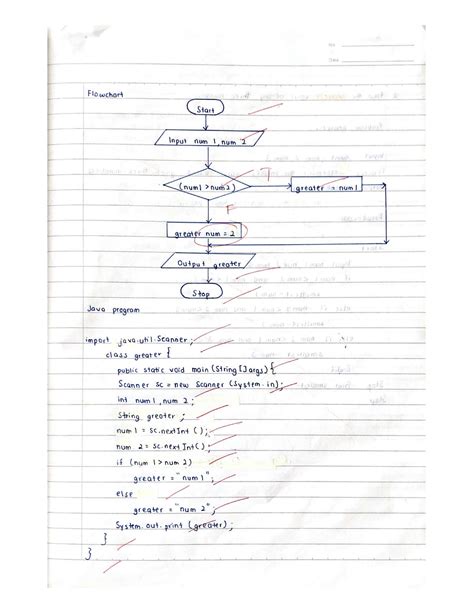 Flowchart
Start
Input num 1, num 2
(num1 > num2)
T
greater = num1
F
greater num = 2
Output greater
Stop
Java program
import java.util.Scanner;
class greater {
public static void main (String [] args) {
Scanner sc = new Scanner (System.in);
int num1, num 2;
String greater ;
num 1 = sc.nextInt ( );
num 2 = sc.nextInt( );
if (num 1 > num 2)
greater = "num 1" ;
else
greater = "num 2" ;
System.out.print (greater) ;
}
}